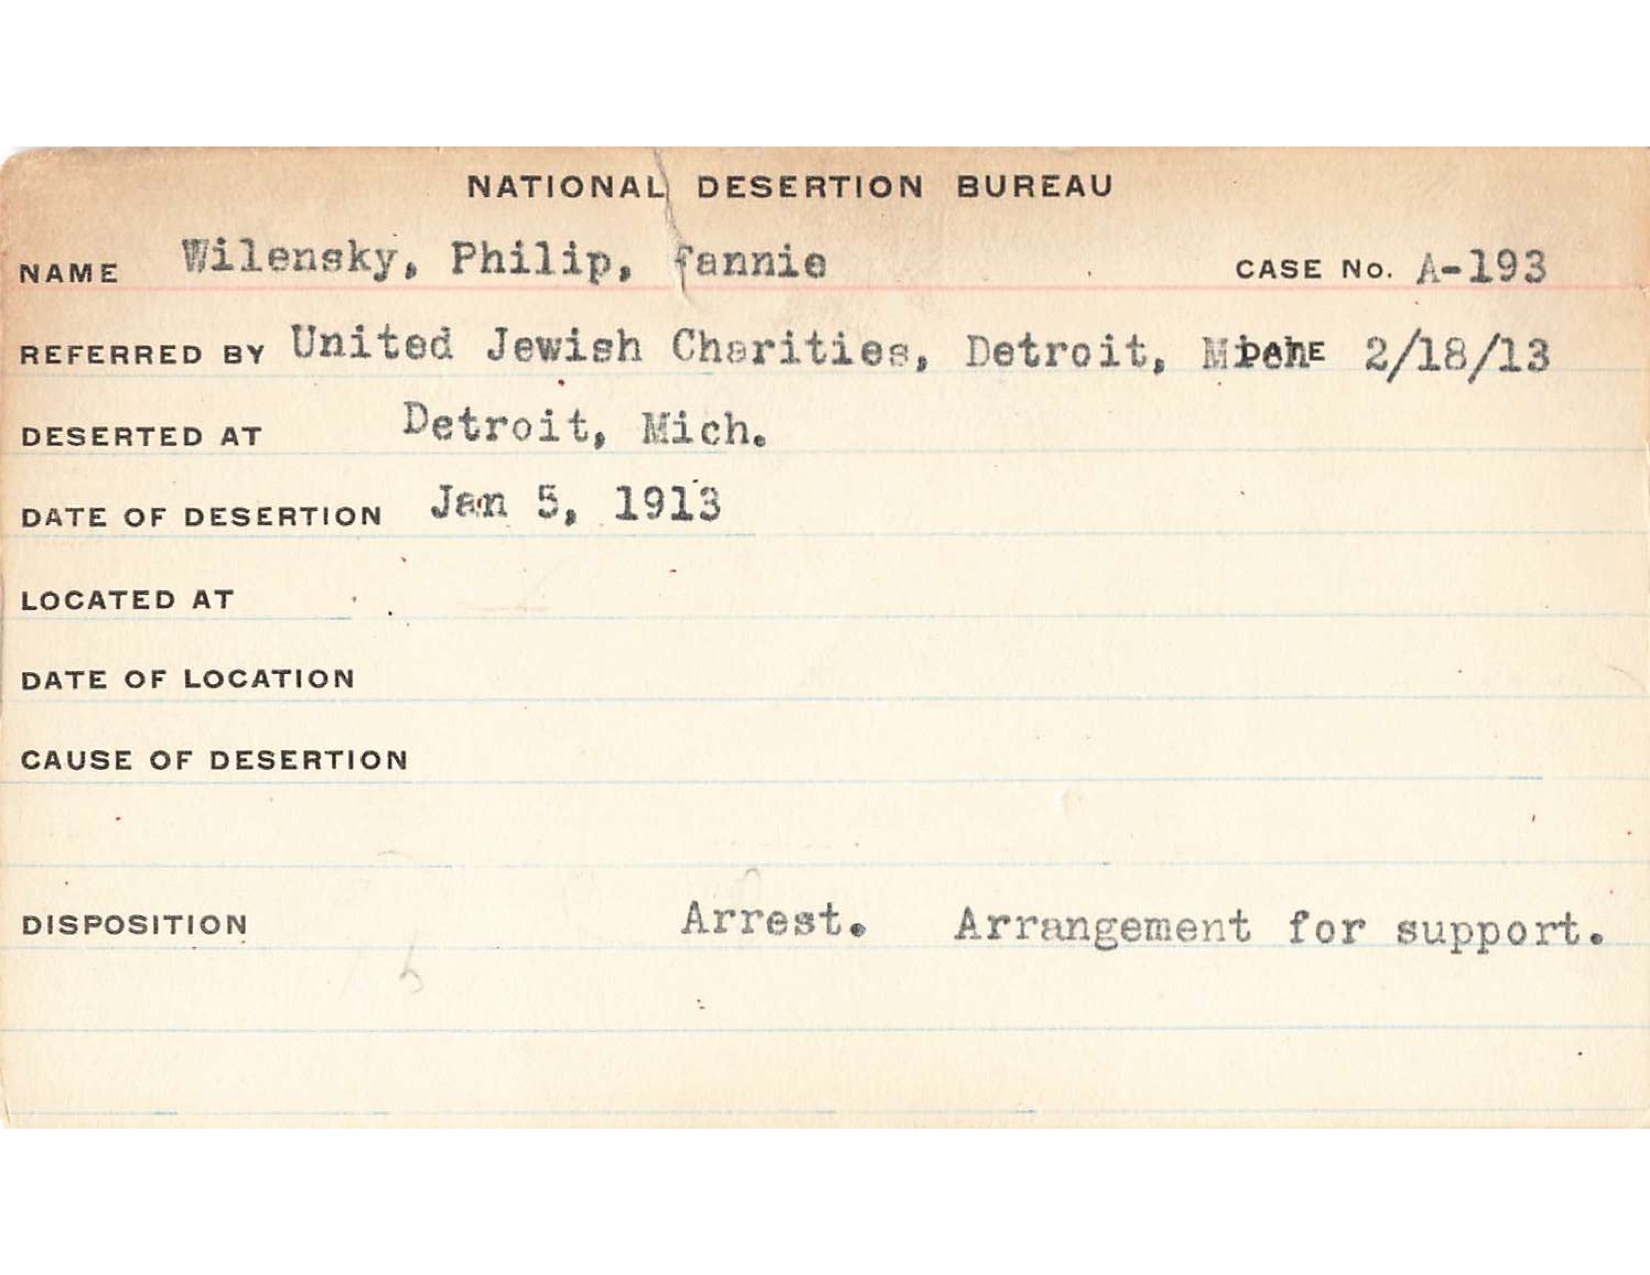 NATIONAL DESERTION BUREAU
NAME Wilensky, Philip, fannie CASE No. A-193
REFERRED BY United Jewish Charities, Detroit, Mich DATE 2/18/13
DESERTED AT Detroit, Mich.
DATE OF DESERTION Jan 5, 1913
LOCATED AT
DATE OF LOCATION
CAUSE OF DESERTION
DISPOSITION Arrest. Arrangement for support.